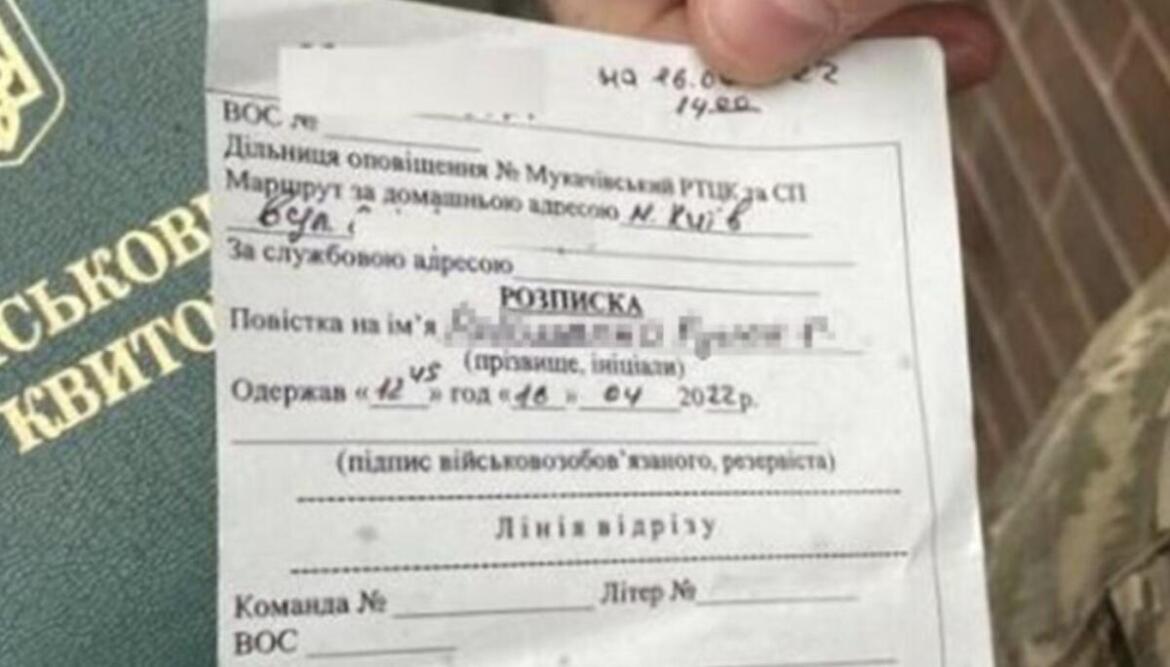 СЬКОВ
КВИТО
на 16.0 22
14 00
ВОС №
Дільниця оповіщення № Мукачівський РТЦК та СП
Маршрут за домашньою адресою м. Київ
вул.
За службовою адресою
РОЗПИСКА
Повістка на ім'я
(прізвище, ініціали)
Одержав «12 45» год «16» 04 2022р.
(підпис військовозобов'язаного, резервіста)
Лінія відрізу
Команда № Літер №
ВОС